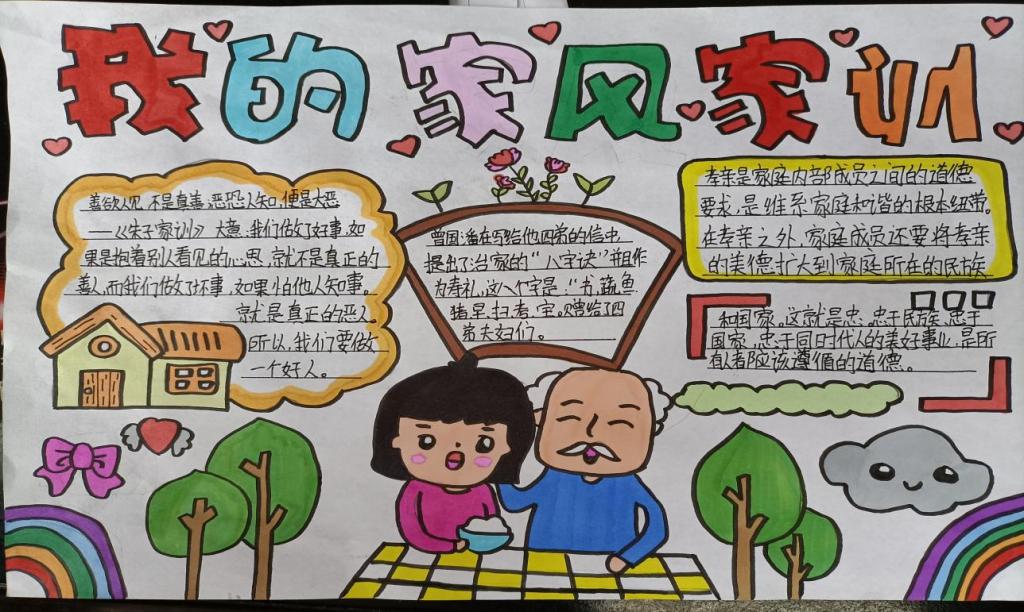 我的家风家训
善欲人见,不是真善,恶恐人知,便是大恶
——《朱子家训》 大意:我们做了好事,如
果是抱着别人看见的心思,就不是真正的
善人,而我们做了坏事,如果怕他人知事。
就是真正的恶人。
所以,我们要做
一个好人。
曾国藩在写给他四弟的信中,
提出了治家的"八字诀"并且作
为寿礼,这八个字是,"书,蔬,鱼
猪,早,扫,考,宝。赠给了四
弟夫妇们。
孝亲是家庭内部成员之间的道德
要求,是维系家庭和谐的根本纽带。
在孝亲之外,家庭成员还要将孝亲
的美德扩大到家庭所在的民族
和国家。这就是忠,忠于民族,忠于
国家,忠于同时代人的美好事业,是所
有人者应该遵循的道德。